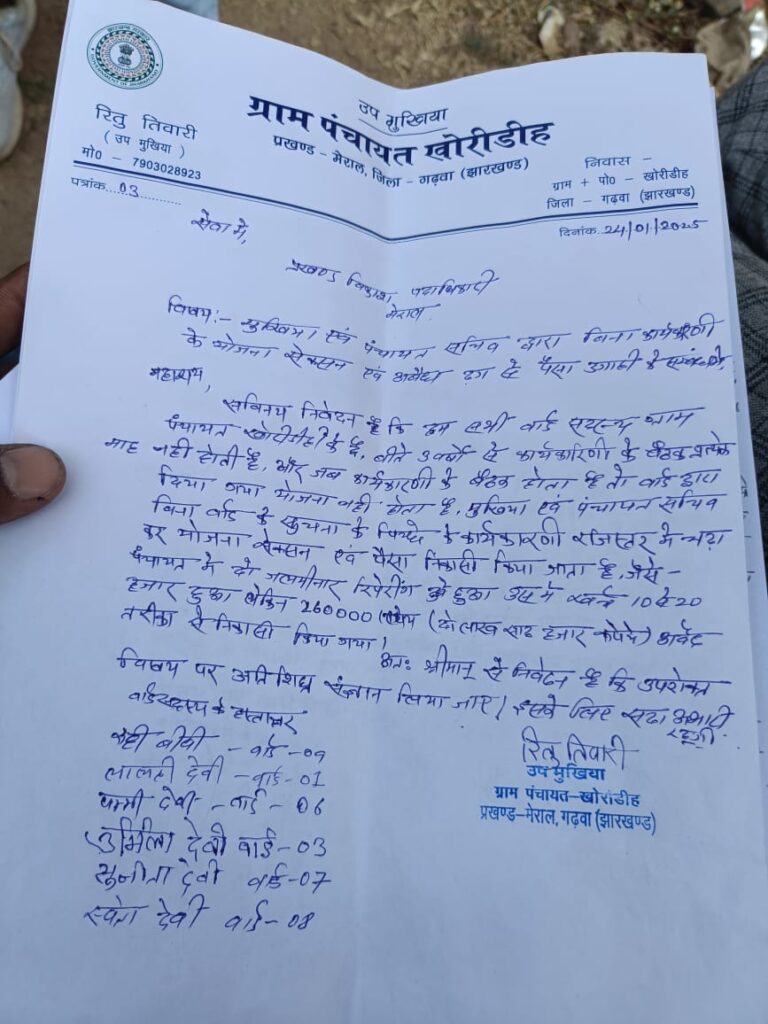 उप मुखिया
ग्राम पंचायत खोरीडीह
प्रखण्ड - मेराल, जिला - गढ़वा (झारखण्ड)
रितु तिवारी
( उप मुखिया )
मो० - 7903028923
निवास -
ग्राम + पो० - खोरीडीह
जिला - गढ़वा (झारखण्ड)
पत्रांक...03
दिनांक.24/01/2025
सेवा में,
प्रखण्ड विकास पदाधिकारी
मेराल
विषय:- मुखिया एवं पंचायत सचिव द्वारा बिना कार्यकारणी
के योजना सेक्सन एवं अवैध ढंग से पैसा उगाही के सम्बंध में,
महाशय,
सविनय निवेदन है कि हम सभी वार्ड सदस्य ग्राम
पंचायत खोरीडीह के है, बीते 3 वर्षों से कार्यकारिणी के बैठक प्रत्येक
माह नही होती है, और जब कार्यकारणी के बैठक होता है तो वार्ड द्वारा
दिया गया योजना नही होता है, मुखिया एवं पंचायत सचिव
बिना वार्ड के सुचना के के कार्यकारणी रजिस्टर मे चढ़ा
कर योजना सेक्सन एवं पैसा निकासी किया जाता है, जैसे -
पंचायत मे दो जलमीनार रिपेरींग हुआ उसमे खर्च 10 से 20
हजार हुआ लेकिन 260000 (दो लाख साठ हजार रूपये) अवैध
तरीका से निकासी किया गया।
अतः श्रीमान् से निवेदन है कि उपरोक्त
विषय पर अतिशिघ्र संज्ञान लिया जाए। इसके लिए सदा आभारी
रहूंगी
वार्ड सदस्य के हस्ताक्षर
बीबी - वार्ड - 09
लालती देवी - वार्ड - 01
पम्मी देवी - वार्ड - 06
उर्मिला देवी वार्ड - 03
सुनीता देवी वार्ड - 07
स्वेता देवी वार्ड - 08
रितु तिवारी
उप मुखिया
ग्राम पंचायत-खोरीडीह
प्रखण्ड-मेराल, गढ़वा (झारखण्ड)